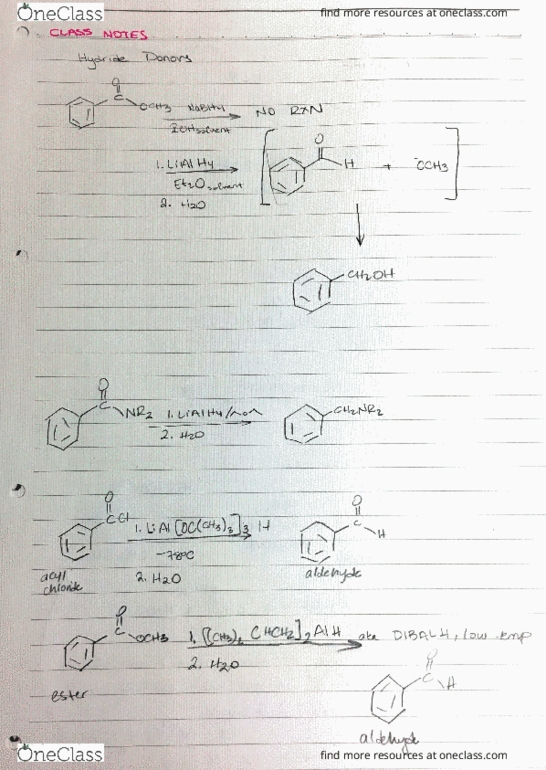 OneClass
find more resources at oneclass.com
CLASS NOTES
Hydride Donors
O
C
OCH3
NaBH4
NO RXN
ROH solvent
1. LiAlH4
Et2O solvent
2. H2O
O
C
H
+
⁻OCH3
CH2OH
O
C
NR2
1. LiAlH4
2. H2O
CH2NR2
O
CCl
1. LiAl[OC(CH3)3]3 H
-78°C
2. H2O
acyl chloride
O
C
H
aldehyde
O
C
OCH3
1. [(CH3)2 CHCH2]2AlH
aka DIBALH, low temp
2. H2O
ester
O
C
H
aldehyde
OneClass
find more resources at oneclass.com